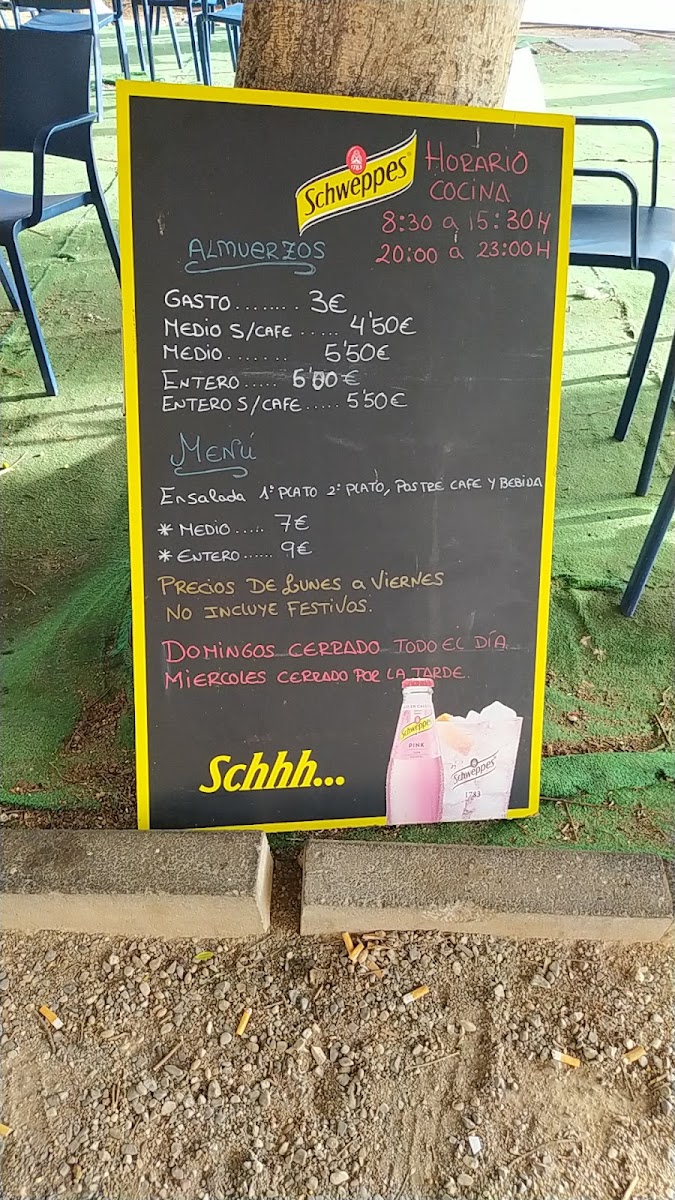 Schweppes
1783
HORARIO
COCINA
8:30 a 15:30H
20:00 a 23:00H
ALMUERZOS
GASTO........ 3€
MEDIO S/CAFE ..... 4'50€
MEDIO....... 5'50€
ENTERO..... 6'00€
ENTERO S/CAFE..... 5'50€
MENÚ
Ensalada 1º PLATO 2º PLATO, POSTRE CAFE Y BEBIDA
* MEDIO..... 7€
* ENTERO...... 9€
PRECIOS DE LUNES a VIERNES
NO INCLUYE FESTIVOS.
DOMINGOS CERRADO TODO EL DÍA
MIERCOLES CERRADO POR LA TARDE.
Schweppes
PINK
Schweppes
1783
Schhh...